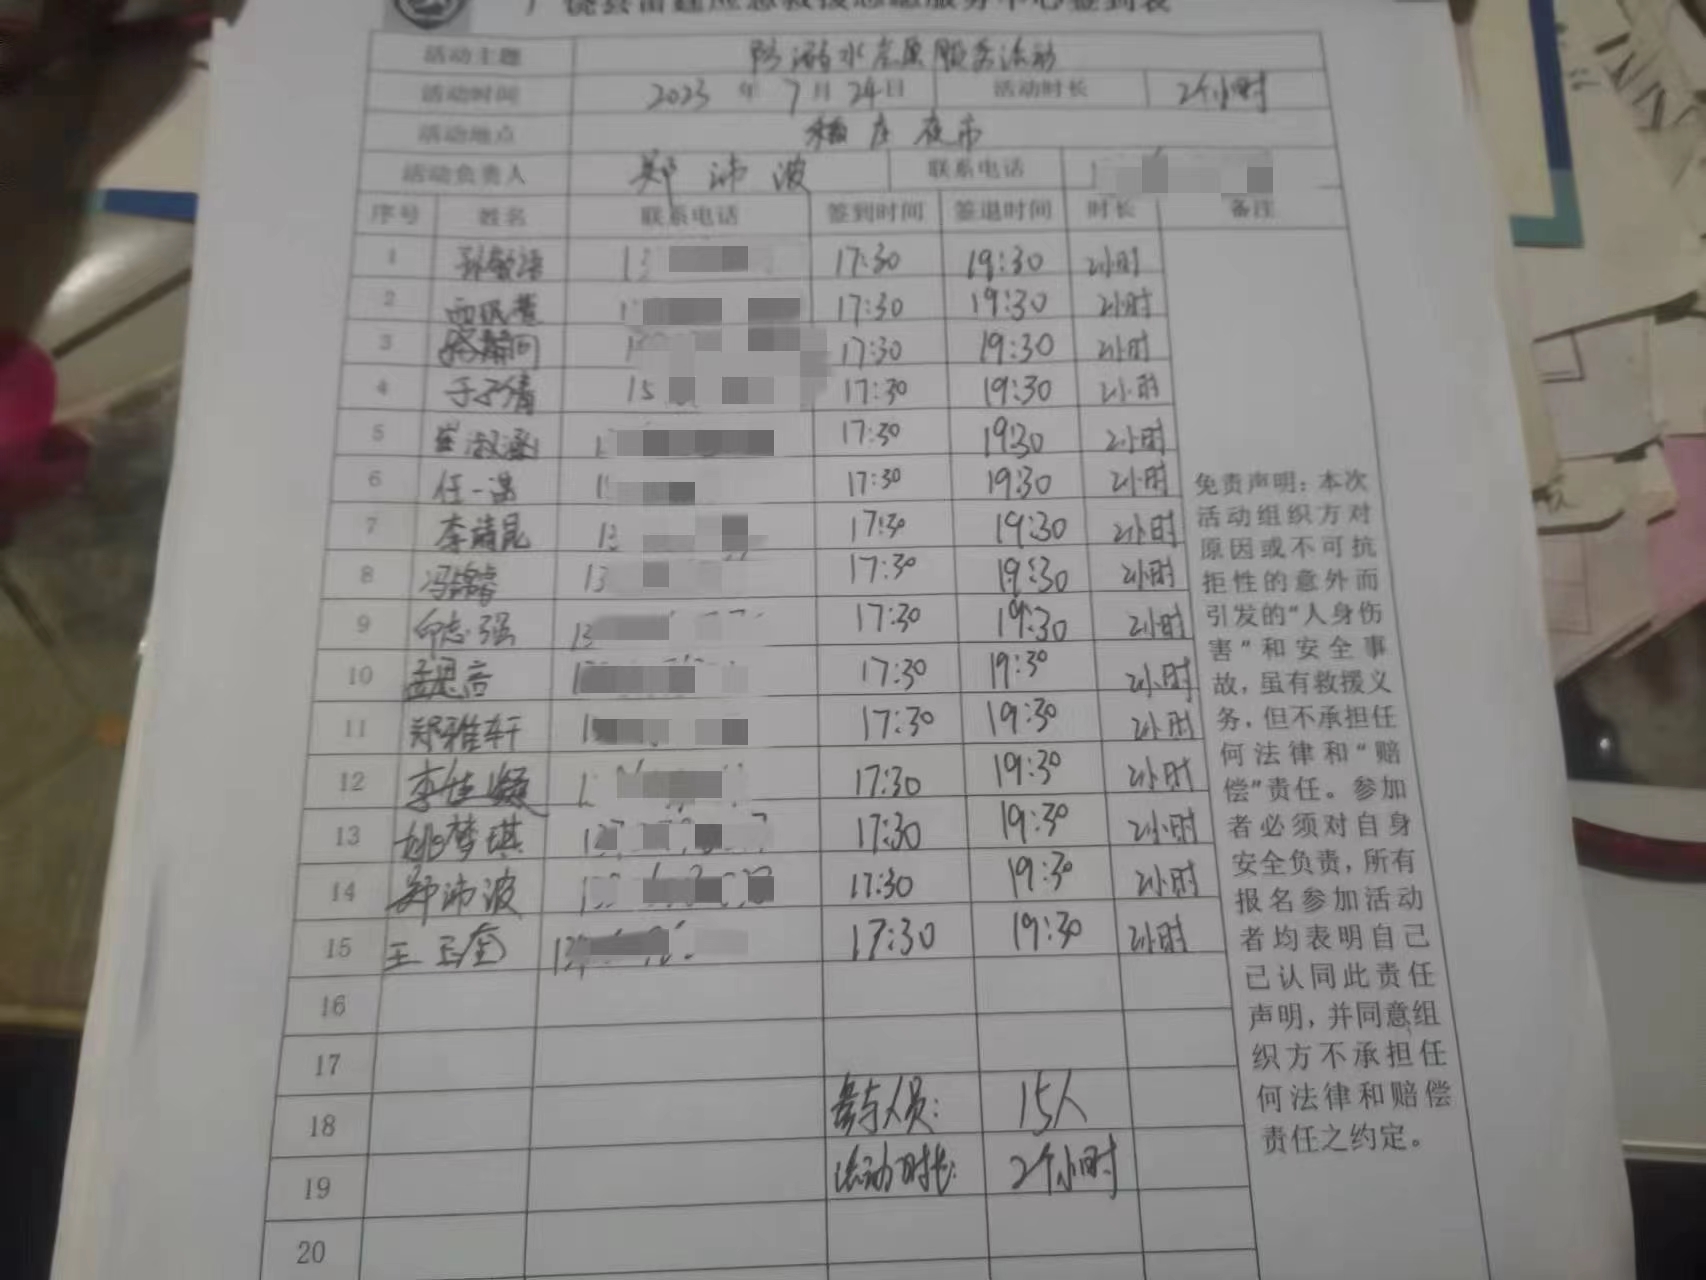 应急救援志愿服务中心签到表
活动主题 防溺水志愿服务活动
活动时间 2023 年 7 月 24 日 活动时长 2个小时
活动地点 稻庄夜市
活动负责人 郑沛波 联系电话 1
序号 姓名 联系电话 签到时间 签退时间 时长 备注
1 孙敏洁 13 17:30 19:30 2小时
2 17:30 19:30 2小时
3 17:30 19:30 2小时
4 于子倩 15 17:30 19:30 2小时
5 崔淑涵 1 17:30 19:30 2小时
6 任一诺 1 17:30 19:30 2小时
7 李靖昆 13 17:30 19:30 2小时
8 冯锦睿 13 17:30 19:30 2小时
9 志强 13 17:30 19:30 2小时
10 孟思言 17:30 19:30 2小时
11 郑雅轩 1 17:30 19:30 2小时
12 李佳凝 1 17:30 19:30 2小时
13 姚梦琪 17:30 19:30 2小时
14 郑沛波 17:30 19:30 2小时
15 王玉奎 17:30 19:30 2小时
16
17
18 参与人员: 15人
19 活动时长: 2个小时
20
免责声明：本次
活动组织方对
原因或不可抗
拒性的意外而
引发的“人身伤
害”和安全事
故，虽有救援义
务，但不承担任
何法律和“赔
偿”责任。参加
者必须对自身
安全负责，所有
报名参加活动
者均表明自己
已认同此责任
声明，并同意组
织方不承担任
何法律和赔偿
责任之约定。